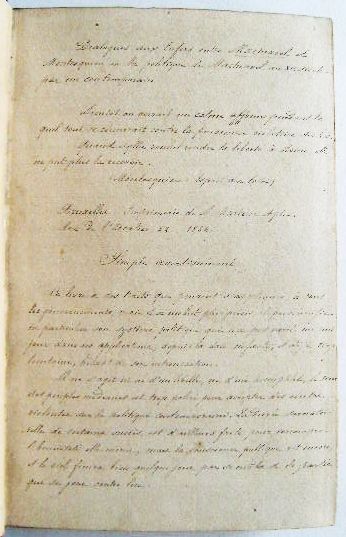 Dialogue aux Enfers entre Machiavel et
Montesquieu ou la politique de Machiavel au XIXe siècle
par un contemporain
Bientôt on aurait un calme affreux pendant le
quel tout se réunirait contre la puissance violatrice des lois.
Quand Sylla voulut rendre la liberté à Rome elle
ne put plus la recevoir.
Montesquieu esprit des lois
Bruxelles Imprimerie de
rue de l'Escalier 22 1864
Simple avertissement
Ce livre a des traits qui peuvent s'appliquer à tous
les gouvernements, mais il a un but plus précis il personnifie
en particulier un système politique qui n'a pas varié un seul
jour dans ses applications, depuis la date néfaste et déjà trop
lointaine, hélas! de son intronisation.
Il ne s'agit ici ni d'un libelle, ni d'un pamphlet, le sens
des peuples modernes est trop policé pour accepter des vérités
violentes sur la politique contemporaine. La durée surnatu-
relle de certains succès, est d'ailleurs faite pour corrompre
l'honnêteté elle même, mais la conscience publique vit encore
et le ciel finira bien quelque jour par se mêler de la partie
qui se joue contre lui.